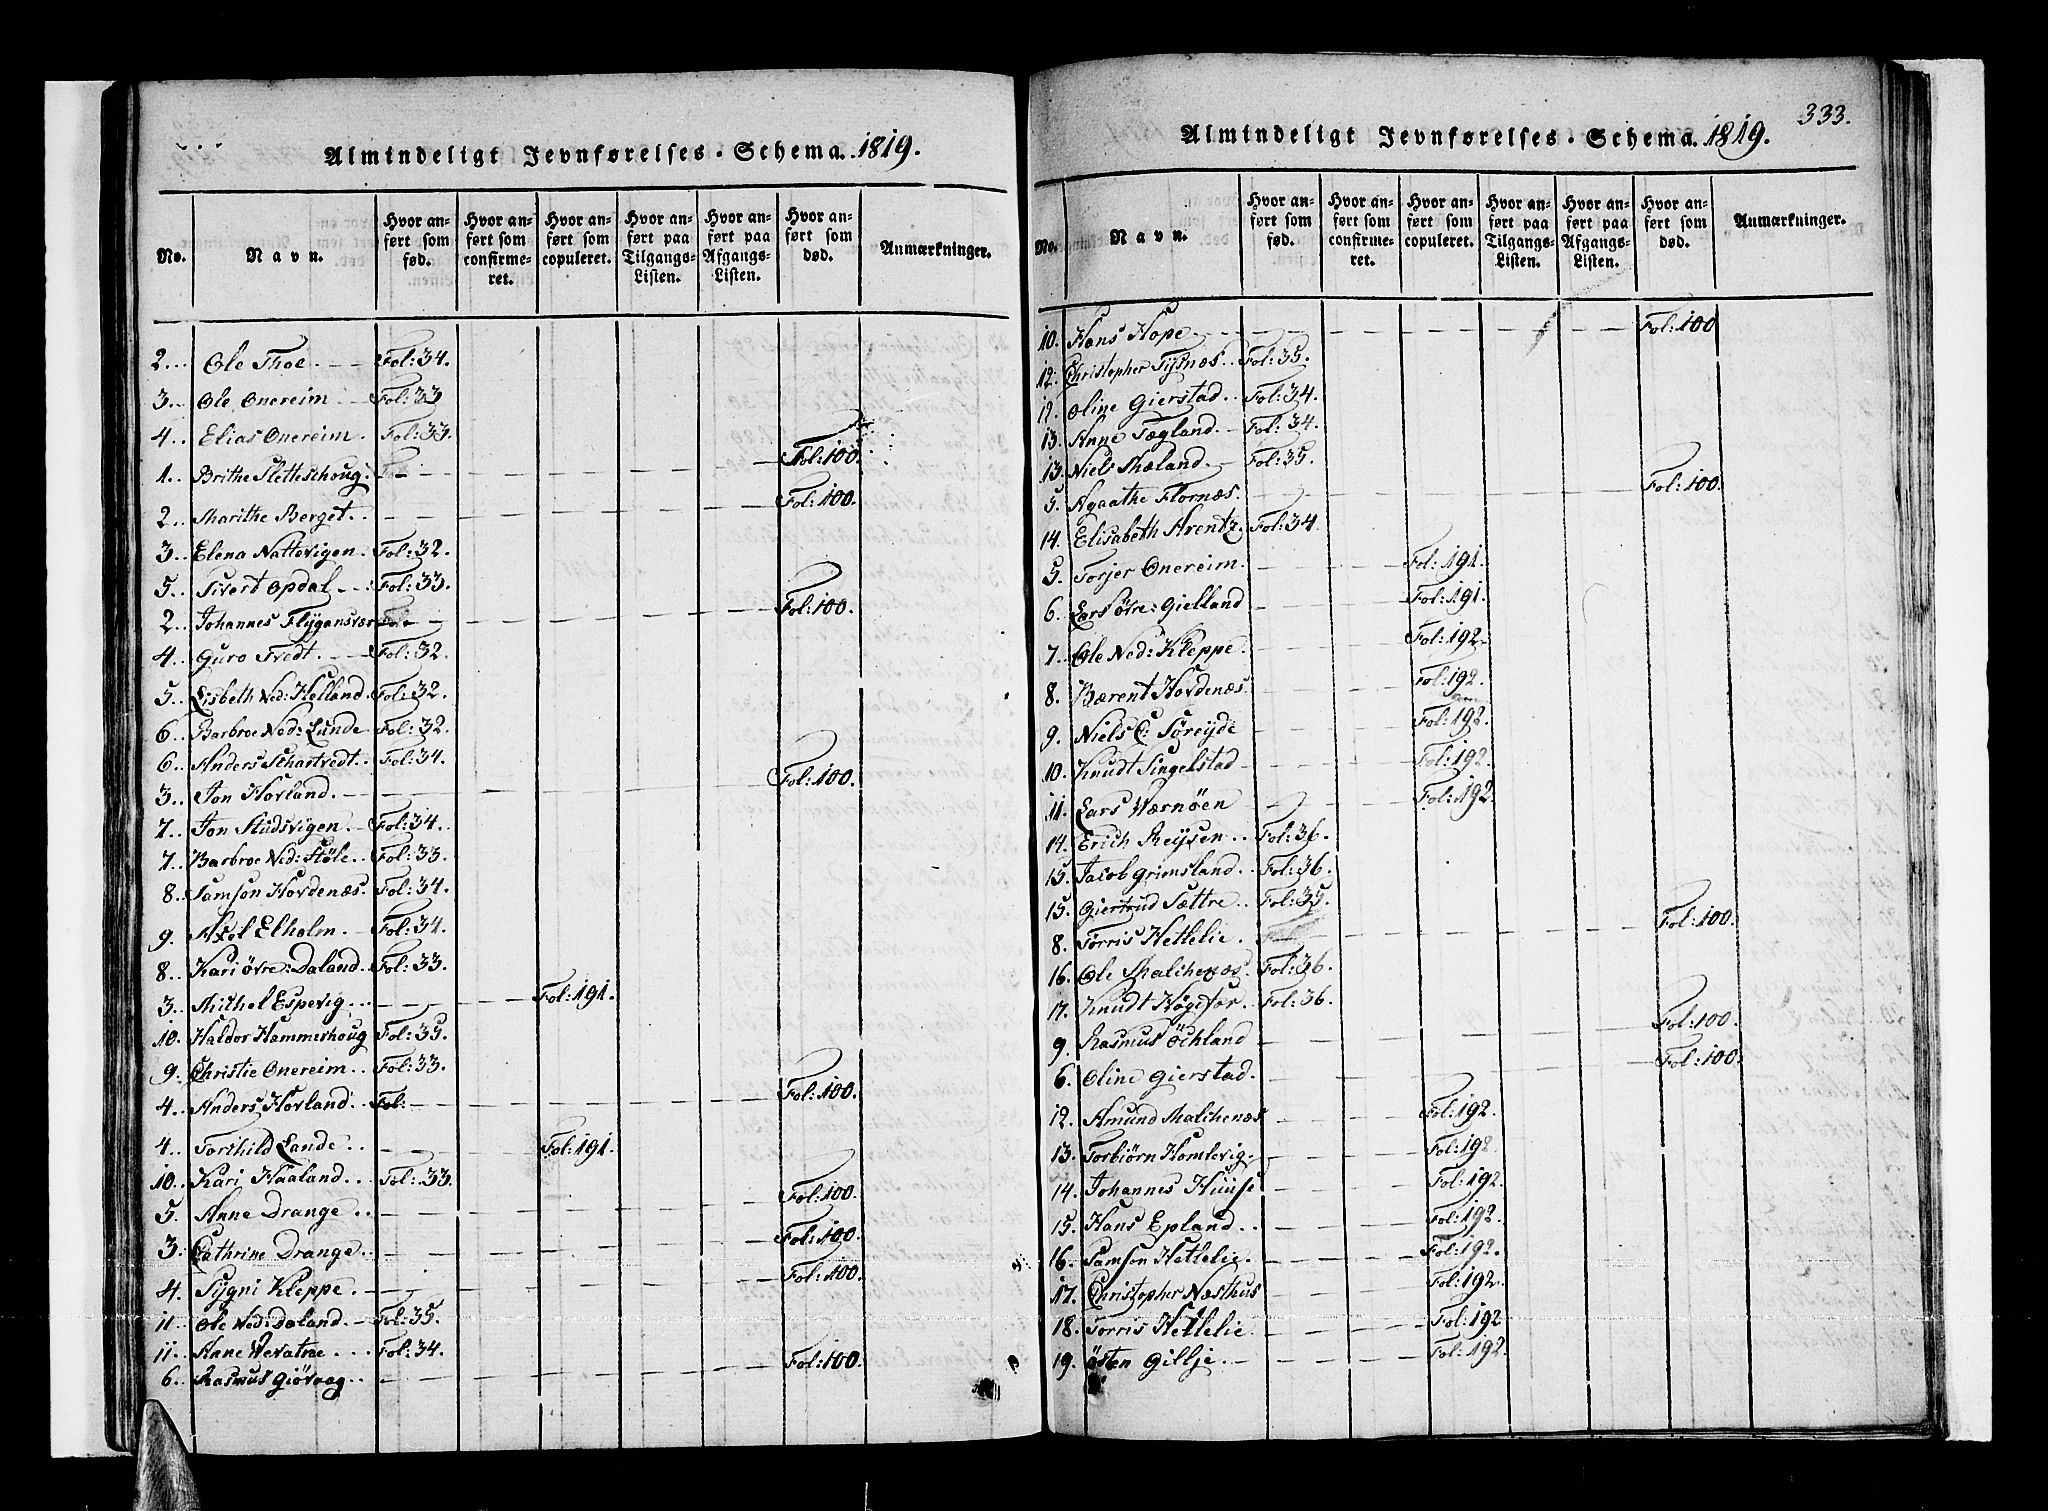 Almindeligt Jevnførelses-Schema. 1819.
No. Navn. Hvor anført som fød. Hvor anført som confirmeret. Hvor anført som copuleret. Hvor anført paa Tilgangs-Listen. Hvor anført paa Afgangs-Listen. Hvor anført som død. Anmærkninger.
2. Ole Thoe. Fol: 34.
3. Ole Onereim Fol: 33
4. Elias Onereim. Fol: 33.
1. Brithe Sletteschoug. Fol: 100.
2. Marithe Berget. Fol: 100.
3. Elena Nattevigen. Fol: 32.
5. Sivert Opdal Fol: 33.
2. Johannes Flygansvær Fol: 100.
4. Guro Tvedt. Fol: 32.
5. Lisbeth Ned: Helland. Fol: 32.
6. Barbroe Ned: Lunde Fol: 32.
6. Anders Schartvedt. Fol: 34.
3. Jon Hovland. Fol: 100.
7. Jon Studsvigen. Fol: 34.
7. Barbroe Ned: Støle. Fol: 33.
8. Samson Hovdenæs. Fol: 34.
9. Axel Elholm. Fol: 34.
8. Kari øvre: Daland. Fol: 33.
3. Michel Espevig. Fol: 191.
10. Haldor Hammerhoug Fol: 35.
9. Christie Onereim. Fol: 33.
4. Anders Hovland. Fol: Fol: 100.
4. Torchild Lande. Fol: 191.
10. Kari Haaland. Fol: 33.
5. Anne Drange. Fol: 100.
3. Cathrine Drange. Fol: 100.
4. Sygni Kleppe. Fol: 100.
11. Ole Ned: Daland. Fol: 35.
11. Anne Wevatne. Fol: 34.
6. Rasmus Giövaag. Fol: 100.
333.
Almindeligt Jevnførelses-Schema. 1819.
No. Navn. Hvor anført som fød. Hvor anført som confirmeret. Hvor anført som copuleret. Hvor anført paa Tilgangs-Listen. Hvor anført paa Afgangs-Listen. Hvor anført som død. Anmærkninger.
10. Hans Hope Fol: 100
12. Christopher Tysnæs. Fol: 35.
12. Oline Gierstad. Fol: 34.
13. Anne Tægland. Fol: 34.
13. Niels Mæland. Fol: 35.
5. Agaathe Flornæs. Fol: 100.
14. Elisabeth Arentz. Fol: 34.
5. Torjer Onereim. Fol: 191.
6. Lars øvre: Gielland Fol: 191.
7. Ole Ned: Kleppe. Fol: 192.
8. Bærent Hovdenæs. Fol: 192.
9. Niels C: Søreyde Fol: 192.
10. Knudt Singelstad Fol: 192.
11. Lars Værnöen Fol: 192.
14. Erich Reysen. Fol: 36.
15. Jacob Grimsland. Fol: 36.
15. Giertrud Sættre. Fol: 35.
8. Tørris Hetlelie. Fol: 100.
16. Ole Malchenæs Fol: 36.
17. Knudt Høgefor. Fol: 36.
9. Rasmus Öchland Fol: 100.
6. Oline Gierstad. Fol: 100.
12. Amund Malchenæs Fol: 192.
13. Torbiørn Homlevig. Fol: 192
14. Johannes Huuse Fol: 192.
15. Hans Epland. Fol: 192.
16. Samson Hetlelie. Fol: 192.
17. Christopher Næsthus Fol: 192.
18. Tørris Hetlelie. Fol: 192
19. Østen Gillje. Fol: 192.